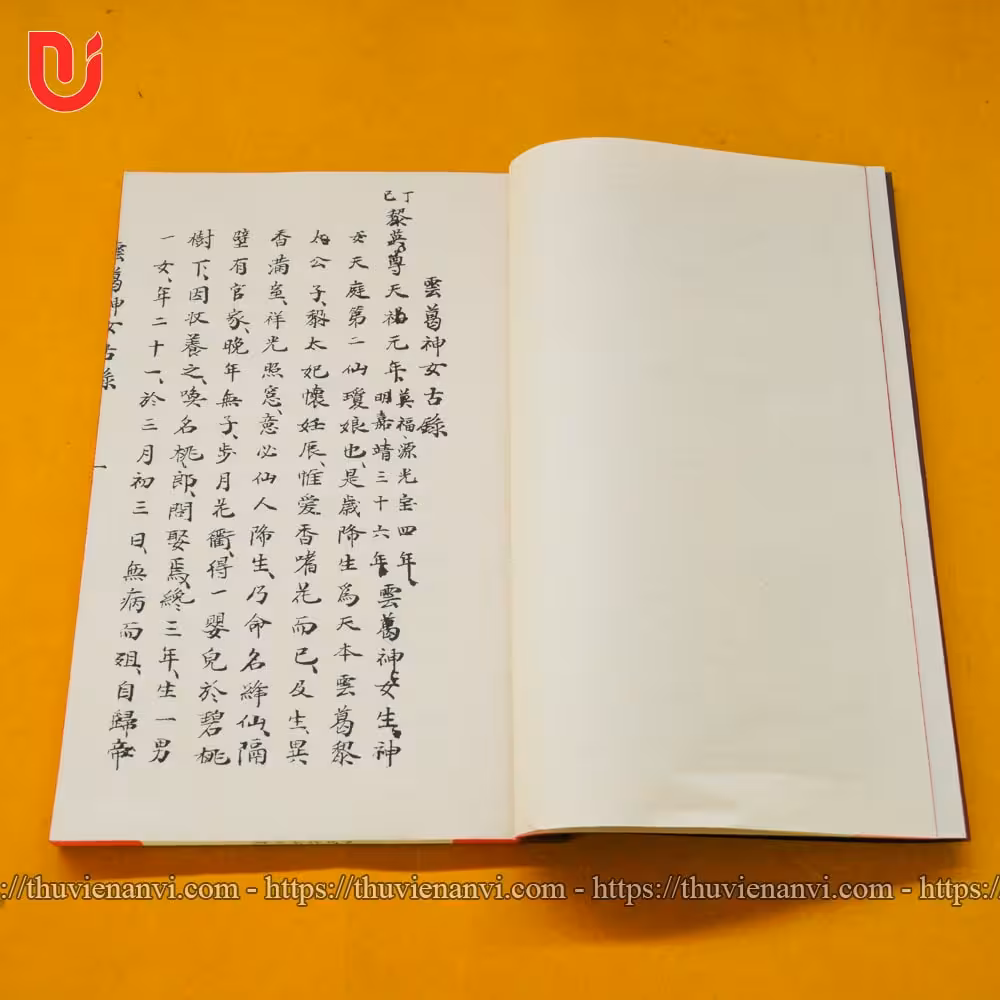 雲葛神女古錄
丁巳黎英尊天祐元年、莫福源光宝四年、明嘉靖三十六年雲葛神女生、神
女天庭第二仙瓊娘也、是歲降生爲天本雲葛黎
太公子、黎太妃懷妊辰、惟爱香嗜花而已、及生、異
香滿室、祥光照窓、意必仙人降生、乃命名絳仙、隔
壁有官家、晚年無子、步月花衢、得一嬰兒於碧桃
樹下、因收養之、喚名桃郎、閗娶焉、終三年、生一男
一女、年二十一、於三月初三日、無病而殂、自歸帝
雲葛神女古錄
一
://thuvienanvi.com - https://thuvienanvi.com - https://thuvienanvi.com - https://